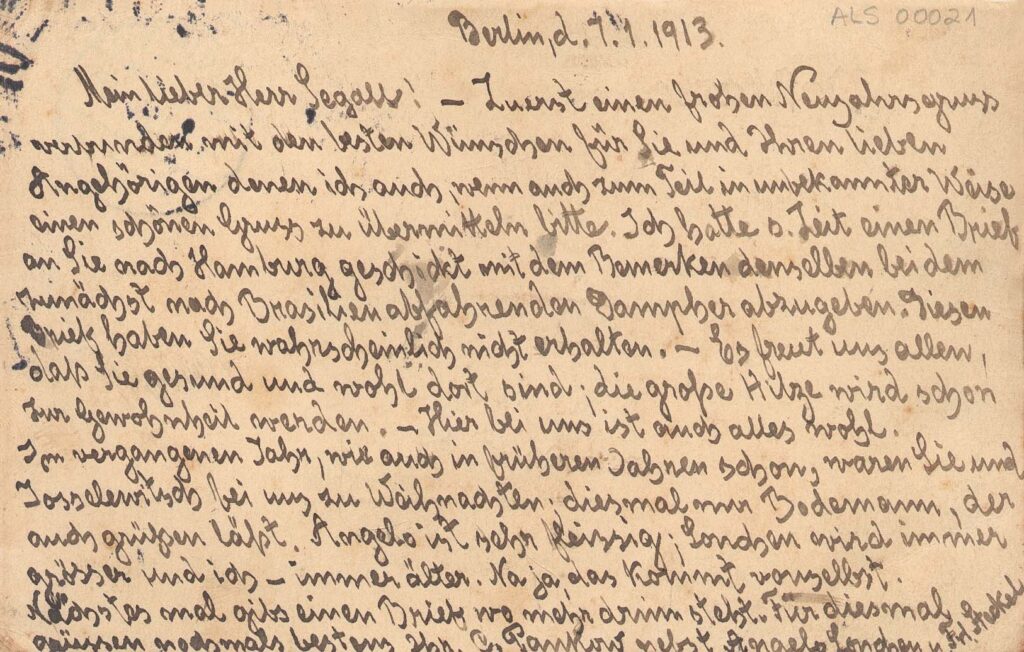 ALS 00021
Berlin, d. 7.1.1913.
Mein lieber Herr Segall! – Zuerst einen frohen Neujahrsgruss
verbunden mit den besten Wünschen für Sie und Ihren lieben
Angehörigen denen ich auch, wenn auch zum Teil in unbekannter Weise
einen schönen Gruss zu übermitteln bitte. Ich hatte s. Zeit einen Brief
an Sie nach Hamburg geschickt mit dem Bemerken denselben bei dem
zunächst nach Brasilien abfahrenden Dampfer abzugeben. Diesen
Brief haben Sie wahrscheinlich nicht erhalten. – Es freut uns allen,
daß Sie gesund und wohl dort sind; die große Hitze wird schon
zur Gewohnheit werden. – Hier bei uns ist auch alles wohl.
Im vergangenen Jahr, wie auch in früheren Jahren schon, waren Sie und
Josselewitsch bei uns zu Weihnachten; diesmal nur Bodemann, der
auch grüßen läßt. Angelo ist sehr fleissig; Londchen wird immer
grösser und ich – immer älter. Na ja das kommt vonselbst.
Nächstes mal gibs einen Brief wo mehr drinn steht. Für diesmal
grüssen nochmals bestens Ihr Pankow nebst Angelo Londchen u.